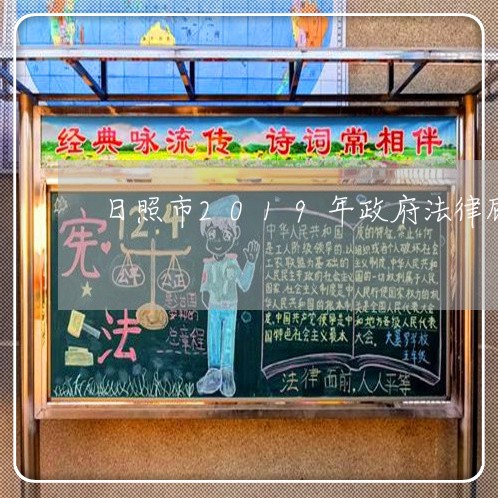 经典咏流传 诗词常相伴
日照市2019年政府法律顾
12.4
宪
法
公平
公正
总章程
中华人民共和国
是工人阶级领导的,以
工农联盟为基础的
人民民主专政的社会主义
国家,社会主义制度是中
华人民共和国的根本制
度,中国共产党领导是中
国特色社会主义最本
质的特征,禁止任何
组织或者个人破坏社会
主义制度,中华人民共和
国的一切权利属于人民,
人民行使国家权力的机
关是全国人民代表大会
和地方各级人民代表
大会。
五年级
法律面前,人人平等